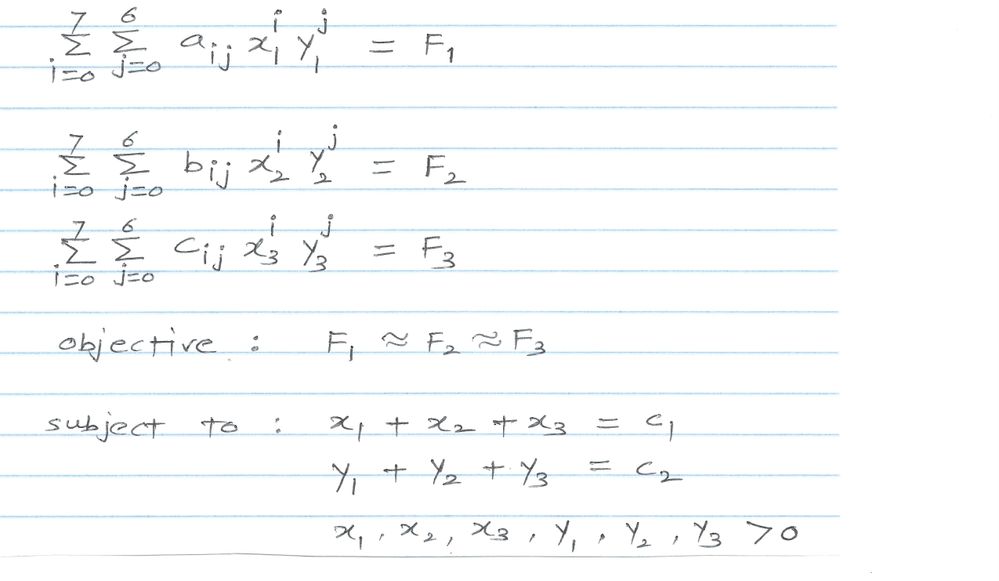 7 6
Σ Σ a_ij x_1^i y_1^j = F_1
i=0 j=0
7 6
Σ Σ b_ij x_2^i y_2^j = F_2
i=0 j=0
7 6
Σ Σ c_ij x_3^i y_3^j = F_3
i=0 j=0
objective : F_1 ≈ F_2 ≈ F_3
subject to : x_1 + x_2 + x_3 = c_1
y_1 + y_2 + y_3 = c_2
x_1, x_2, x_3, y_1, y_2, y_3 > 0